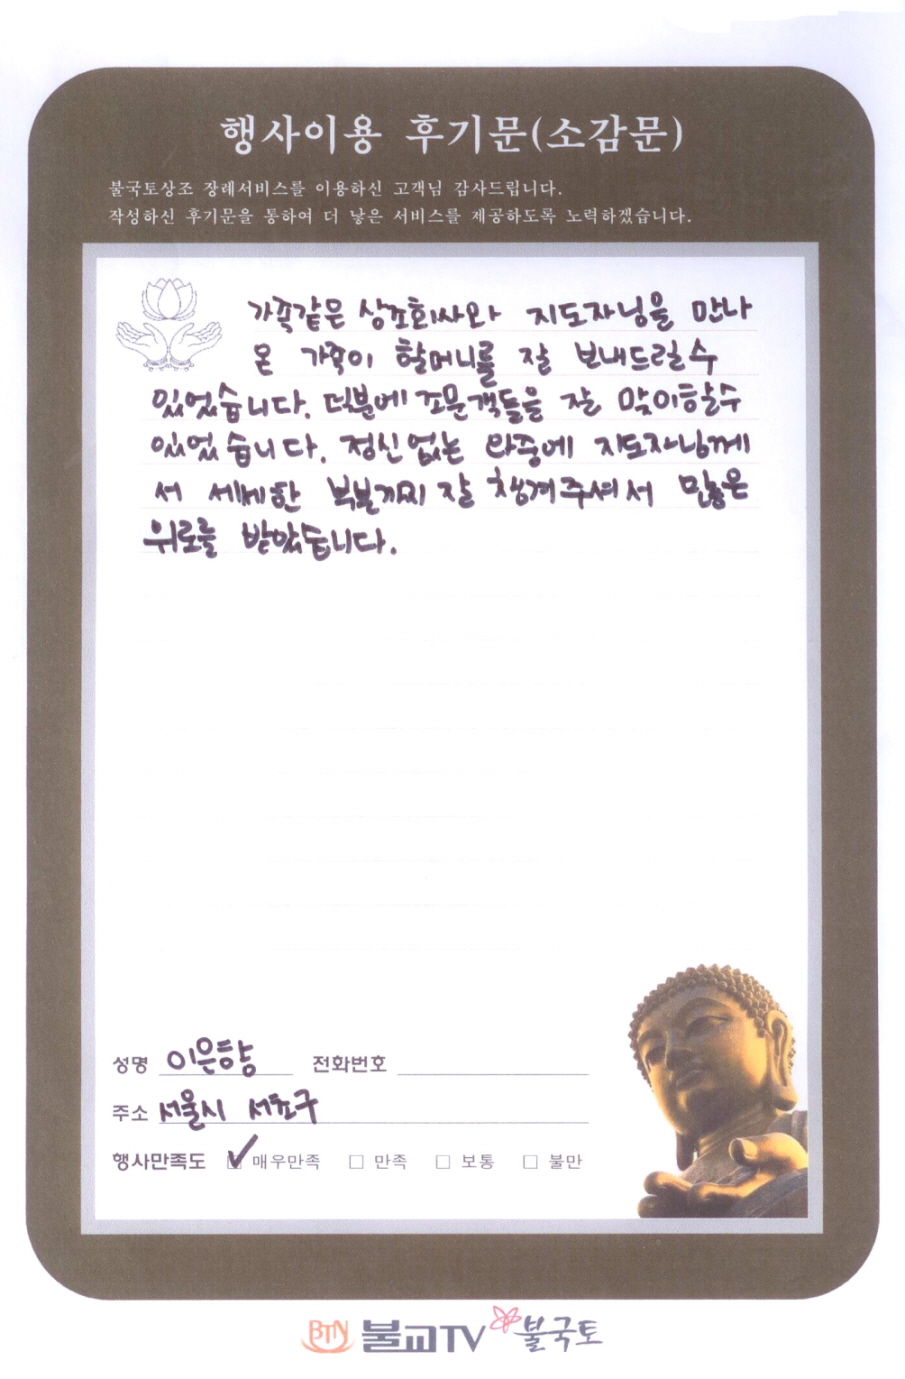 행사이용 후기문(소감문)
불국토상조 장례서비스를 이용하신 고객님 감사드립니다.
작성하신 후기문을 통하여 더 낳은 서비스를 제공하도록 노력하겠습니다.
가족같은 상조회사와 지도자님을 만나
온 가족이 할머니를 잘 보내드릴수
있었습니다. 덕분에 조문객들을 잘 맞이할수
있었습니다. 정신없는 와중에 지도자님께
서 세세한 부분까지 잘 챙겨주셔서 많은
위로를 받았습니다.
성명 이은향 전화번호
주소 서울시 서초구
행사만족도 ✓ 매우만족 □ 만족 □ 보통 □ 불만
BTN 불교TV 불국토